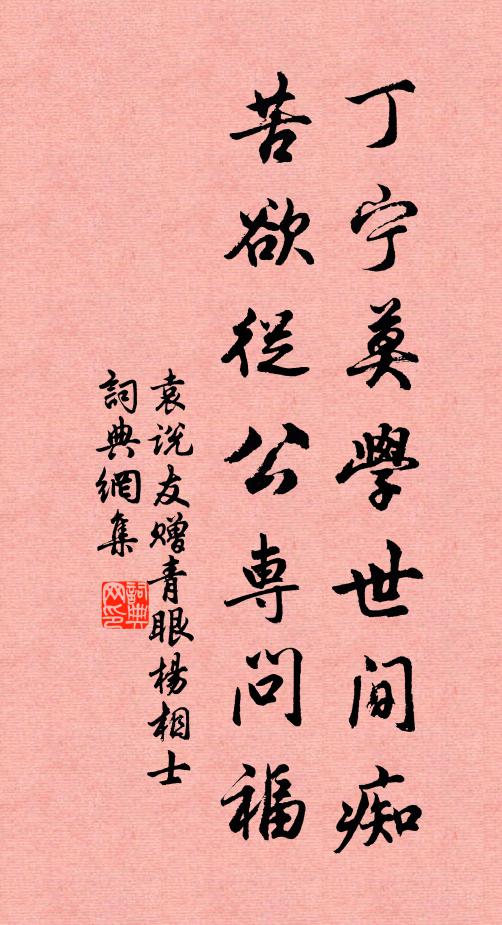 丁宁莫學世間痴
苦欲從公専問福
袁说友赠青眼楊相士
詞典網集
詞典网印